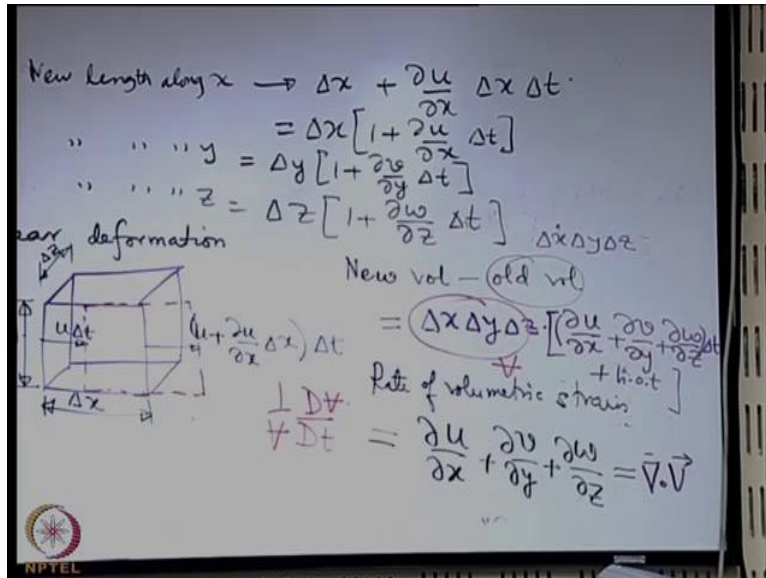 New length along x → Δx + ∂u/∂x Δx Δt.
= Δx[1 + ∂u/∂x Δt]
,, ,, ,, y = Δy[1 + ∂v/∂y Δt]
,, ,, ,, z = Δz[1 + ∂w/∂z Δt]
ear deformation
ΔxΔyΔz
New vol – old vol
= ΔxΔyΔz.[(∂u/∂x + ∂v/∂y + ∂w/∂z)Δt
+ h.o.t]
V
uΔt
(u + ∂u/∂x Δx)Δt
Δx
Rate of volumetric strain
1/V DV/Dt = ∂u/∂x + ∂v/∂y + ∂w/∂z = ∇.V
NPTEL